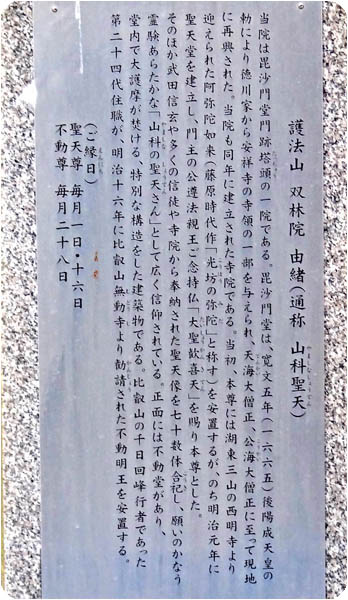 護法山 双林院 由緒（通称 山科聖天）
当院は毘沙門堂門跡塔頭の一院である。毘沙門堂は、寛文五年（一六六五）後陽成天皇の
勅により徳川家から安祥寺の寺領の一部を与えられ、天海大僧正、公海大僧正に至って現地
に再興された。当院も同年に建立された寺院である。当初、本尊には湖東三山の西明寺より
迎えられた阿弥陀如来（藤原時代作「光坊の弥陀」と称す）を安置するが、のち明治元年に
聖天堂を建立し、門主の公遵法親王ご念持仏「大聖歓喜天」を賜り本尊とした。
そのほか武田信玄や多くの信徒や寺院から奉納された聖天像を七十数体合祀し、願いのかなう
霊験あらたかな「山科の聖天さん」として広く信仰されている。正面には不動堂があり、
堂内で大護摩が焚ける、特別な構造をした建築物である。比叡山の千日回峰行者であった
第二十四代住職が、明治十六年に比叡山無動寺より勧請された不動明王を安置する。
（ご縁日）
聖天尊 毎月一日・十六日
不動尊 毎月二十八日